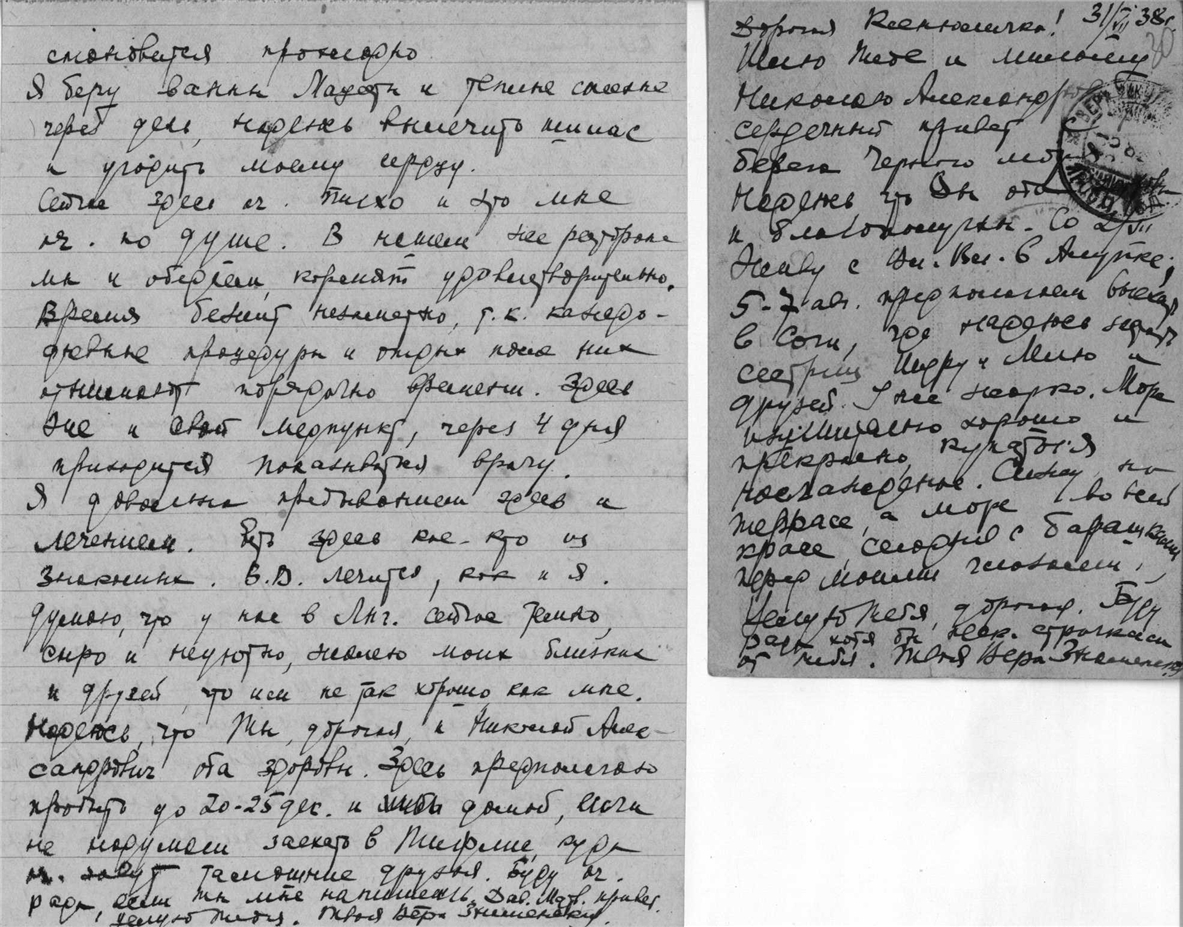 становится прохладно
Я беру ванны Мацесты и теплые
через день, надеюсь вылечить ишиас
и угодить моему сердцу.
Сейчас здесь оч. тихо и это мне
оч. по душе. В нашем же ресторане
мы и обедаем, кормят удовлетворительно.
Время бежит незаметно, т.к. ежедневные
процедуры и отдых после них
отнимают порядочно времени. Здесь
же и свой медпункт, через 4 дня
приходится показываться врачу.
Я довольна пребыванием здесь и
лечением. Есть здесь кое-кто из
знакомых. В.В. лечится, как и я.
Думаю, что у нас в Лнг. сейчас темно,
сыро и неуютно, жалею моих близких
и друзей, что им не так хорошо как мне.
Надеюсь, что Ты, дорогая, и Николай Алек-
сандрович оба здоровы. Здесь предполагаю
пробыть до 20-25 дек. и домой, если
не надумаем заехать в Тифлис куда
оч. зовут тамошние друзья. Буду оч.
рада, если ты мне напишешь. Дав. Мдв. привет.
Целую тебя. Твоя Вера Знаменская.
31/VII 38г.
30
Дорогая Ксенюшечка!
Шлю Тебе и милому
Николаю Александр
сердечный привет
берега Черного мо
Надеюсь что Вы оба
и благополучны. Со 2/VII
Живу с Вл. Вл. в Алупке;
5-7 ав. предполагаем выехать
в Сочи, где надеюсь
сестриц Шуру и Милю и
друзей. У нас жарко. Море
изумительно хорошо и
прекрасно, купаться
наслаждение. Сижу на
террасе, а море во всей
красе, сегодня с барашками
перед моими глазами.
Целую тебя, дорогая. Буду
рада хотя бы неск. строчкам
от тебя. Твоя Вера Знаменская